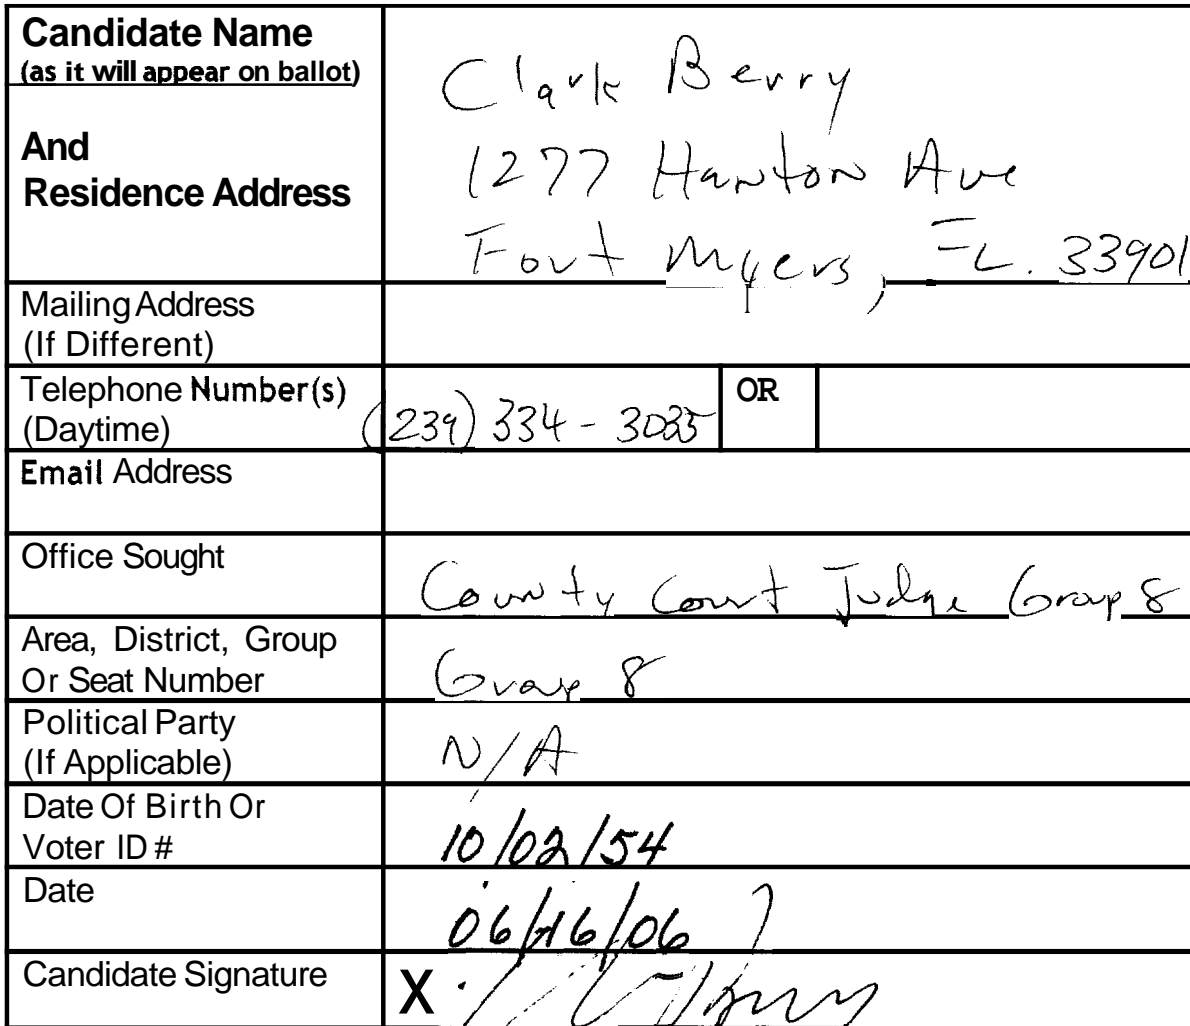 Candidate Name
(as it will appear on ballot)
And
Residence Address
Clark Berry
1277 Hanton Ave
Fort Myers, FL. 33901
Mailing Address
(If Different)
Telephone Number(s)
(Daytime)
(239) 334-3035
OR
Email Address
Office Sought
County Court Judge Group 8
Area, District, Group
Or Seat Number
Group 8
Political Party
(If Applicable)
N/A
Date Of Birth Or
Voter ID #
10/02/54
Date
06/16/06
Candidate Signature
X